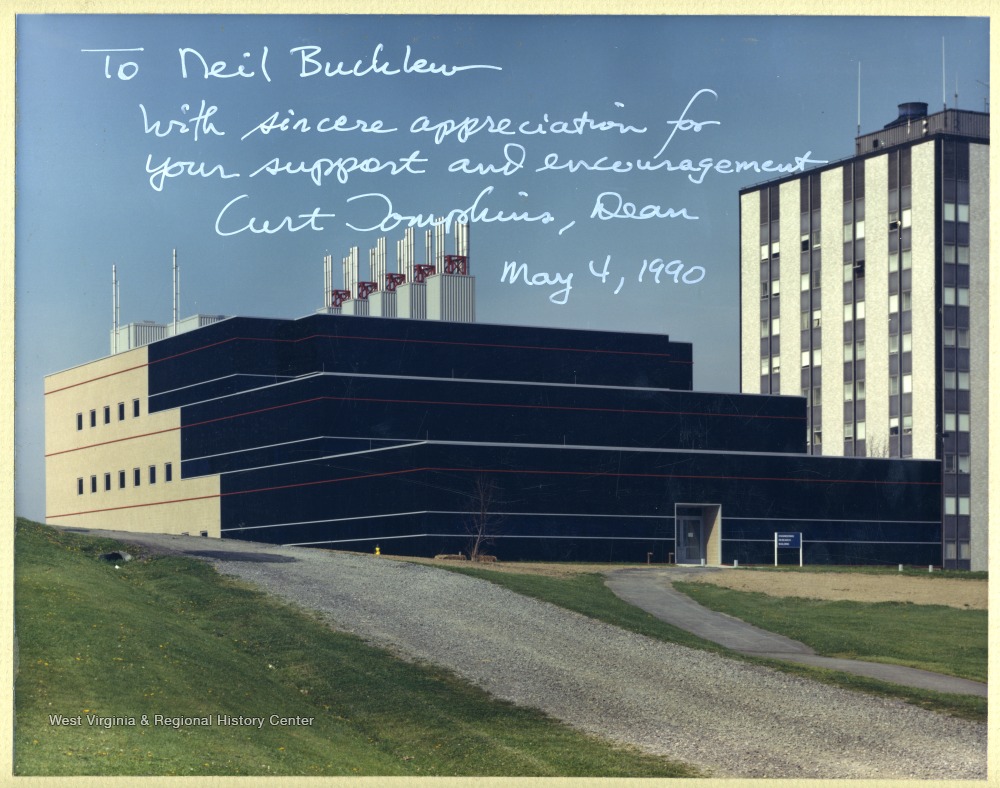 To Neil Bucklew
With sincere appreciation for
your support and encouragement
Curt Tompkins, Dean
May 4, 1990
ENGINEERING
RESEARCH
BUILDING
West Virginia & Regional History Center